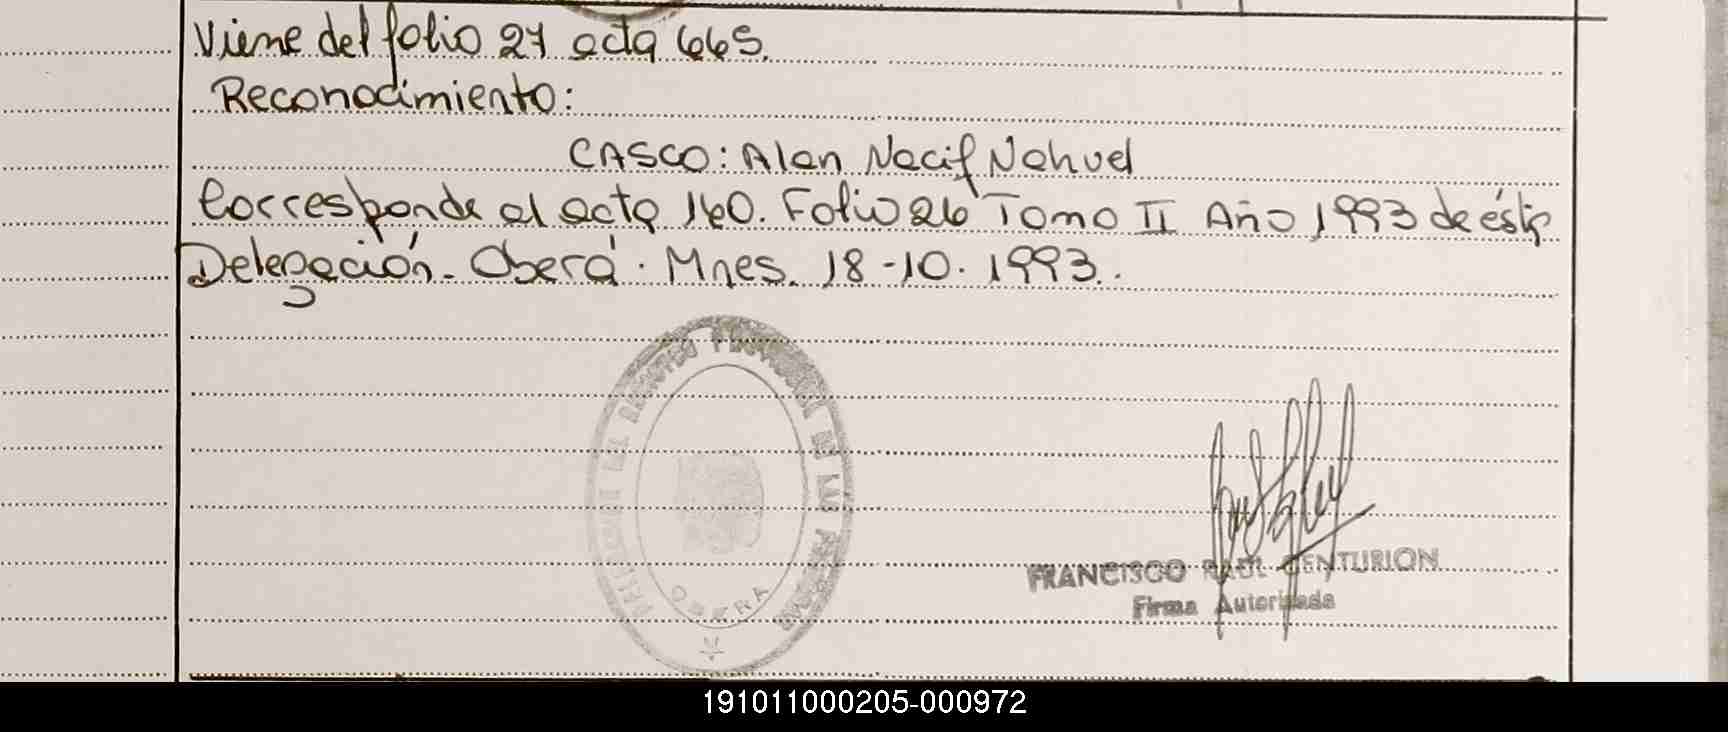 Viene del folio 27 acta 665.
Reconocimiento:
CASCO: Alan Nacif Nahuel
Corresponde al acta 160. Folio 26 Tomo II Año 1993 de ésta
Delegación. Oberá. Mnes. 18-10. 1993.
DELEGACION DEL REGISTRO PROVINCIAL DE LAS PERSONAS
OBERA
FRANCISCO RAUL CENTURION
Firma Autorizada
191011000205-000972